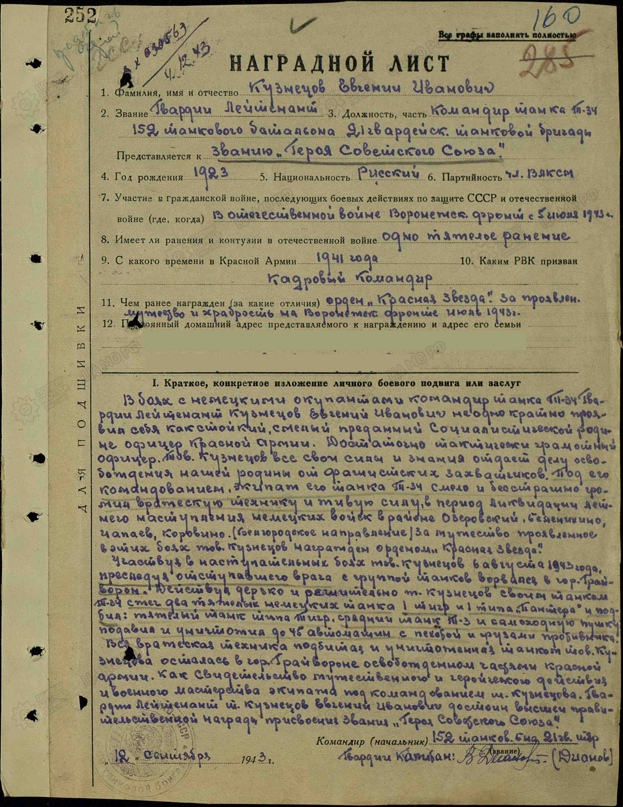 252
160
285
х 030563
4.12.43
Все графы наполнять полностью
НАГРАДНОЙ ЛИСТ
1. Фамилия, имя и отчество Кузнецов Евгений Иванович
2. Звание Гвардии Лейтенант 3. Должность, часть Командир танка Т-34
152 танкового батальона 21 гвардейск. танковой бригады
Представляется к званию „Героя Советского Союза"
4. Год рождения 1923 5. Национальность Русский 6. Партийность чл. ВЛКСМ
7. Участие в гражданской войне, последующих боевых действиях по защите СССР и отечественной
войне (где, когда) В отечественной войне Воронежск фронт с 5 июля 1943 г.
8. Имеет ли ранения и контузии в отечественной войне одно тяжелое ранение
9. С какого времени в Красной Армии 1941 года 10. Каким РВК призван
Кадровый Командир
11. Чем ранее награжден (за какие отличия) орден „Красная Звезда". За проявлен.
мужество и храбрость на Воронежск фронте июль 1943 г.
12. Постоянный домашний адрес представляемого к награждению и адрес его семьи
ДЛЯ ПОДШИВКИ
I. Краткое, конкретное изложение личного боевого подвига или заслуг
В боях с немецкими окупантами командир танка Т-34 Гва-
рдии Лейтенант Кузнецов Евгений Иванович неоднократно проя-
вил себя как стойкий, смелый преданный Социалистической роди-
не офицер Красной Армии. Достаточно тактически грамотный
офицер. Тов. Кузнецов все свои силы и знания отдает делу осво-
бождения нашей родины от фашистских захватчиков. Под его
командованием. Экипаж его танка Т-34 смело и бесстрашно гро-
мил вражескую технику и живую силу, в период ликвидации лет-
него наступления немецких войск в районе Озеровский.
Чапаев, Коровино. (Белгородское направление) За мужество проявленное
в этих боях тов. Кузнецов награжден орденом „Красная Звезда".
Участвуя в наступательных боях тов. Кузнецов 6 августа 1943 года,
преследуя отступавшего врага с группой танков ворвался в гор. Грай-
ворон. Действуя дерзко и решительно т. Кузнецов своим танком
Т-34 сжег два тяжелых немецких танка 1 тигр и 1 типа „Пантера" и под-
бил: тяжелый танк типа тигр. средний танк Т-3 и самоходную пушку
подавил и уничтожил до 45 автомашин с пехотой и грузами противника.
Вся вражеская техника подбитая и уничтоженная танком тов. Ку-
знецова осталась в гор. Грайвороне освобожденном частями красной
армии. Как свидетельство мужественного и геройского действия
и военного мастерства экипажа под командованием т. Кузнецова. Гва-
рдии Лейтенант т. Кузнецов Евгений Иванович достоин высшей прави-
тельственной награды присвоение звания „Героя Советского Союза".
Командир (начальник) 152 танков. б-на 21 гв. тбр
(звание)
12 сентября 1943 г. Гвардии Капитан: (Дианов)